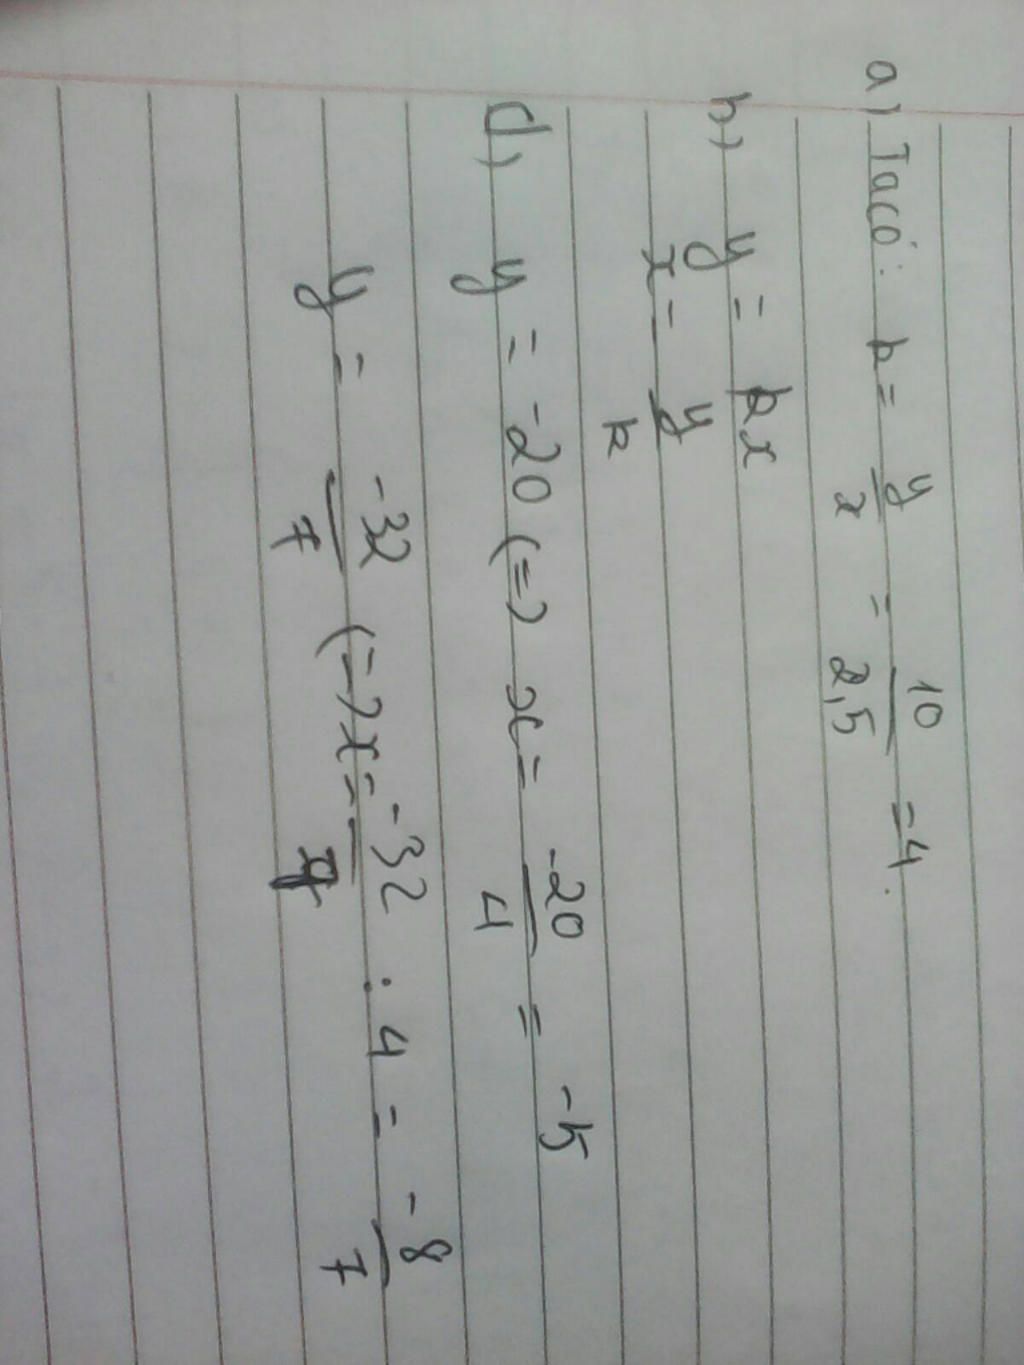 a) Ta có: k = y/x = 10/2,5 = 4.
b) y = kx
x = y/k
d) y = -20 (=) x = -20/4 = -5
y = -32/7 (=) x = -32/7 : 4 = -8/7